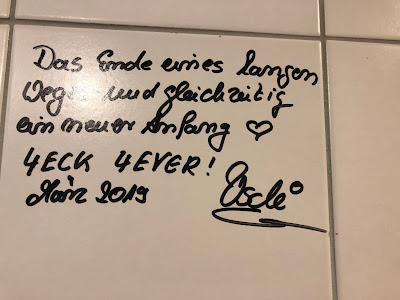 Das Ende eines langen
Weges und gleichzeitig
ein neuer Anfang ♡
4ECK 4EVER!
März 2019